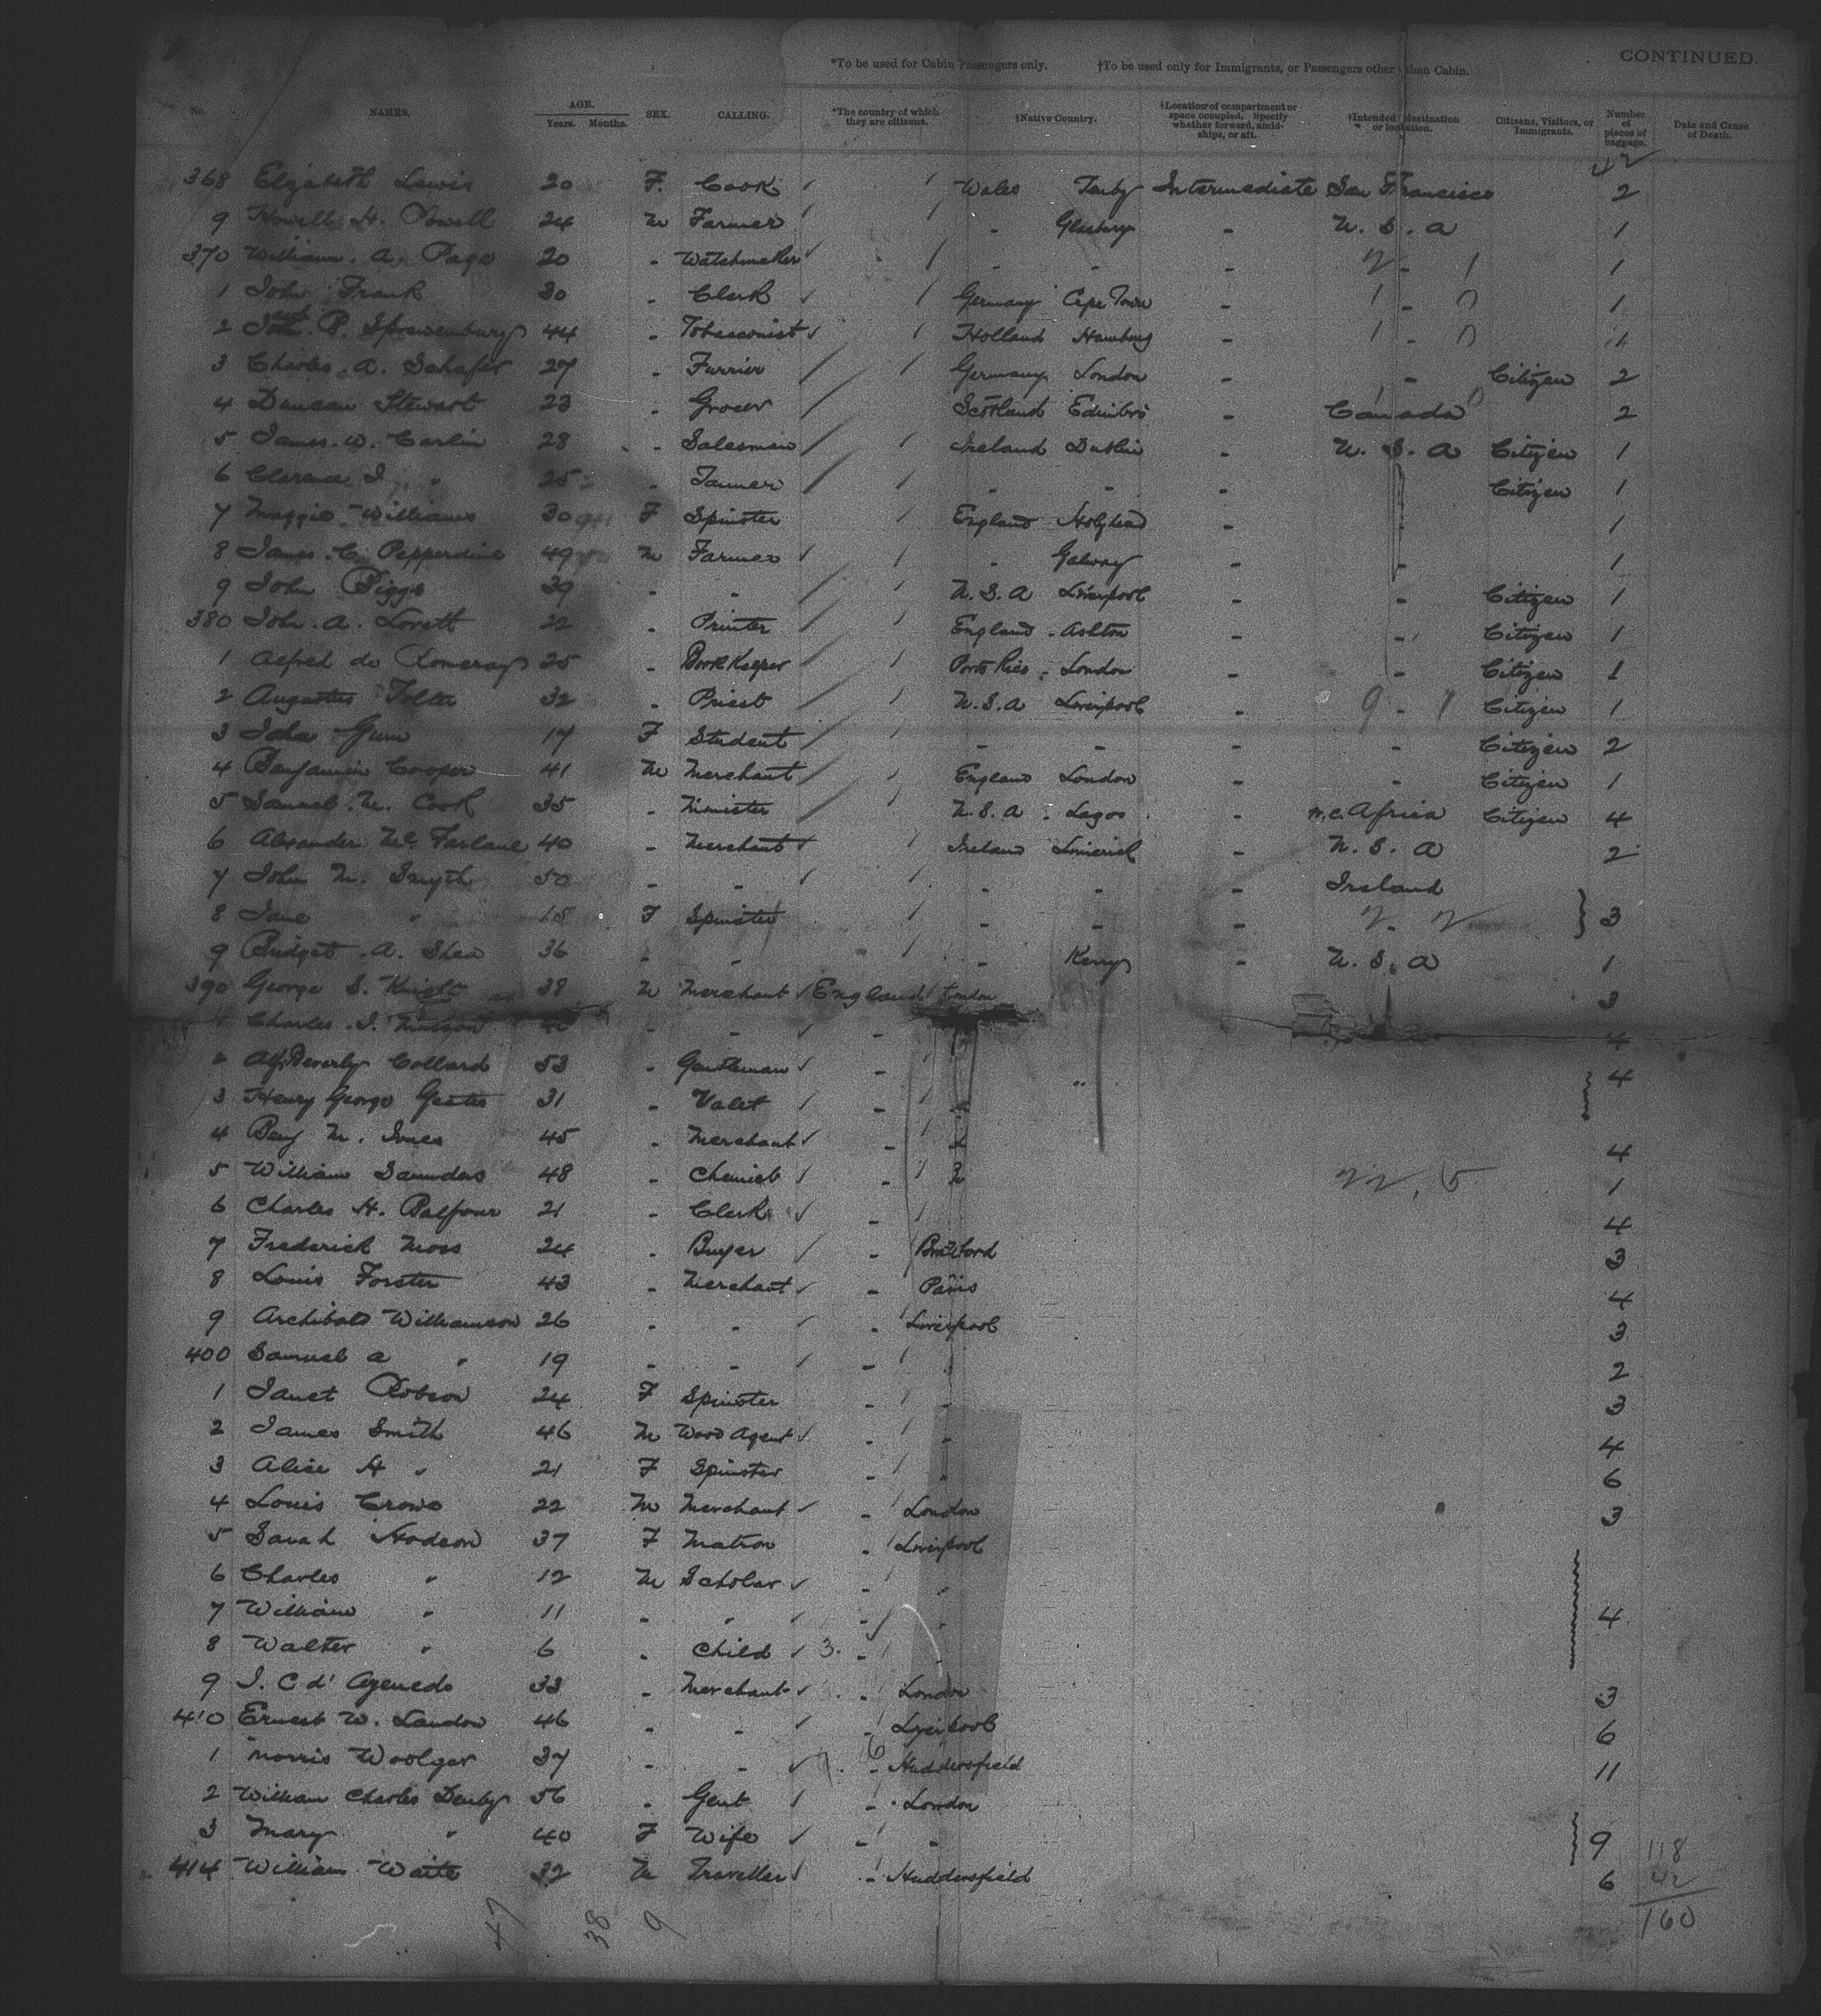 CONTINUED.
*To be used for Cabin Passengers only. †To be used only for Immigrants, or Passengers other than Cabin.
No. NAMES. AGE. Years. Months. SEX. CALLING. *The country of which they are citizens. †Native Country. †Location of compartment or space occupied. Specify whether forward, amidships, or aft. †Intended destination or location. Citizens, Visitors, or Immigrants. Number of pieces of baggage. Date and Cause of Death.
42
368 Elizabeth Lewis 20 F. Cook Wales Tenby Intermediate San Francisco 2
9 Howell H. Powell 24 M Farmer - Glasbury - U.S.A 1
370 William A. Page 20 - Watchmaker - - - - 1
1 John Frank 30 - Clerk Germany Cape Town - - 1
2 44 - Tobacconist Holland Hamburg - - 1
3 Charles A. Schafer 27 - Furrier Germany London - - Citizen 2
4 Duncan Stewart 23 - Grocer Scotland Edinbro - Canada 2
5 James W. Carlin 28 - Salesman Ireland Dublin - U.S.A Citizen 1
6 Clarence I " 25 - Tanner - - - Citizen 1
7 Maggie Williams 30 F Spinster England Holyhead - 1
8 James C. Pepperdine 49 M Farmer - Galway - - 1
9 John Biggs 39 - - U.S.A Liverpool - - Citizen 1
380 John A. Lovett 22 - Printer England Ashton - - Citizen 1
1 Alfred de 25 - Book Keeper Porto Rico London - - Citizen 1
2 Augustus Tolton 32 - Priest U.S.A Liverpool - - Citizen 1
3 Gunn 17 F Student - - - - Citizen 2
4 Benjamin Cooper 41 M Merchant England London - - Citizen 1
5 Samuel M. Cook 35 - Minister U.S.A Lagos - W.C. Africa Citizen 4
6 Alexander McFarlane 40 - Merchant Ireland Limerick - U.S.A 2
7 John M. Smyth 50 - - - - - Ireland
8 Jane " 15 F Spinster - - - - 3
9 Bridget A. Shea 36 - - - Kerry - U.S.A 1
390 George S. Knight 38 M Merchant England London 3
Charles J. - - - 4
2 Alf Beverly Collard 53 - Gentleman - " 4
3 Henry George 31 - Valet -
4 Benj M. Jones 45 - Merchant - 4
5 William Saunders 48 - Chemist - 1
6 Charles H. Balfour 21 - Clerk - 4
7 Frederick Moss 24 - Buyer - Bradford 3
8 Louis Forster 43 - Merchant - Paris 4
9 Archibald Williamson 26 - - - Liverpool 3
400 Samuel A " 19 - - - 2
1 Janet Robson 24 F Spinster - - 3
2 James Smith 46 M Wood Agent - - 4
3 Alice H " 21 F Spinster - " 6
4 Louis Crowe 22 M Merchant - London 3
5 Sarah Hodson 37 F Matron - Liverpool
6 Charles " 12 M Scholar - "
7 William " 11 - " - " 4
8 Walter " 6 - Child 3. -
9 J. C d' Azevedo 33 - Merchant - London 3
410 Ernest W. Landon 46 - - - Liverpool 6
1 Morris Woolgar 37 - - - Huddersfield 11
2 William Charles Denby 56 - Gent - London
3 Mary " 40 F Wife - - 9 118
414 William Waite 32 M Traveller - Huddersfield 6 42
160
47 38 9